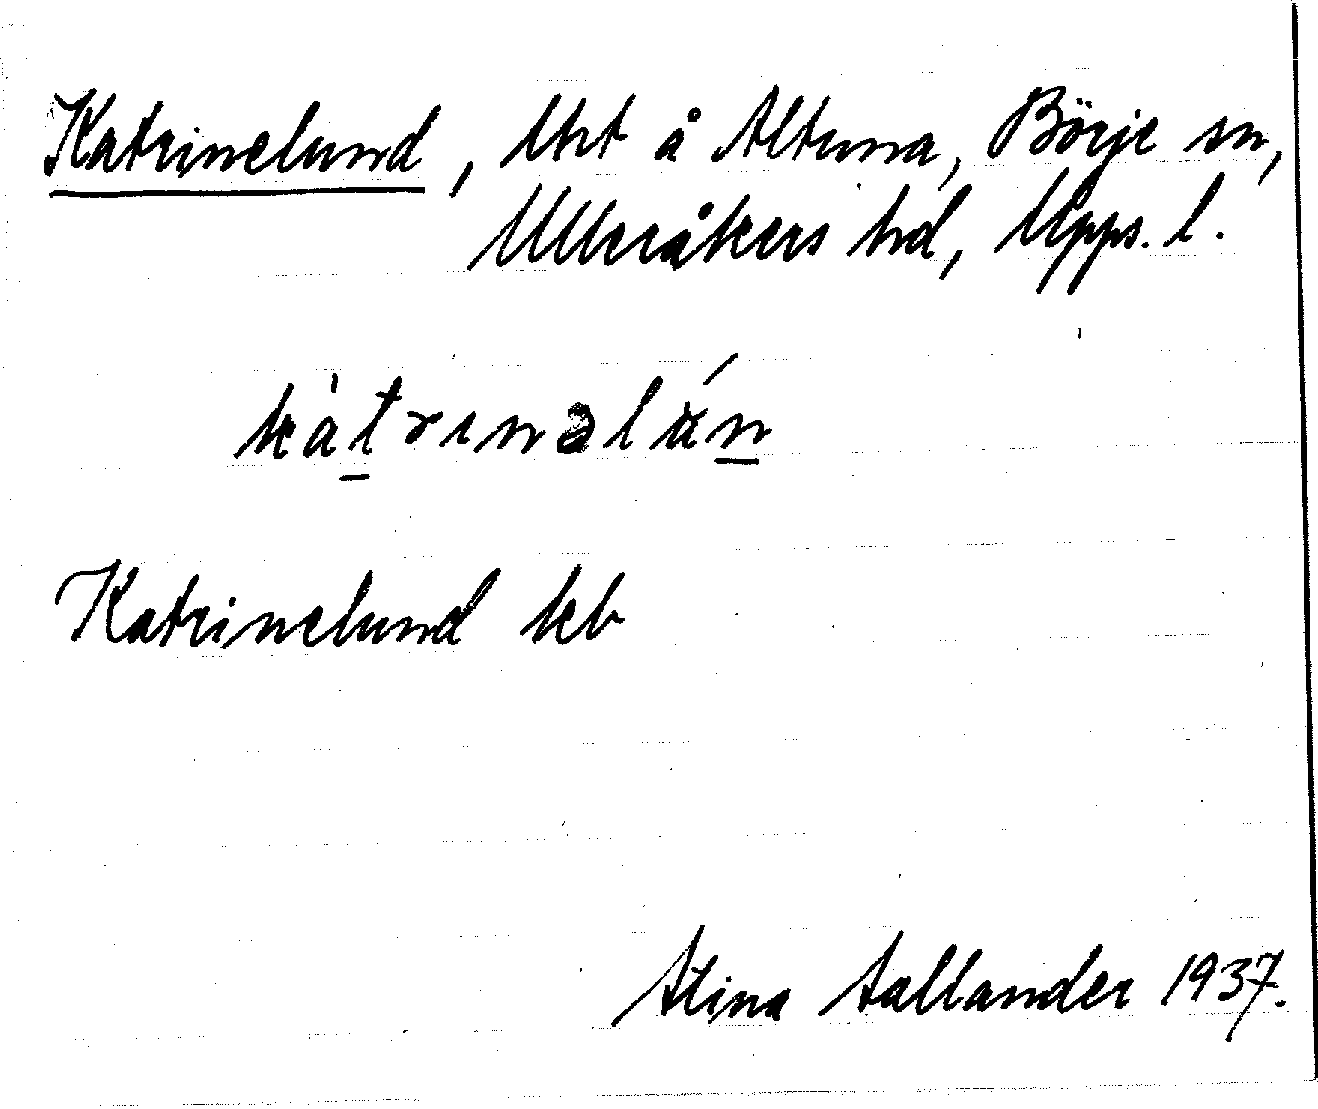 Katrinelund, lht å Altuna, Börje sn,
Ulleråkers hd, Upps. l.
Katrinelund kb
Stina Sallander 1937.